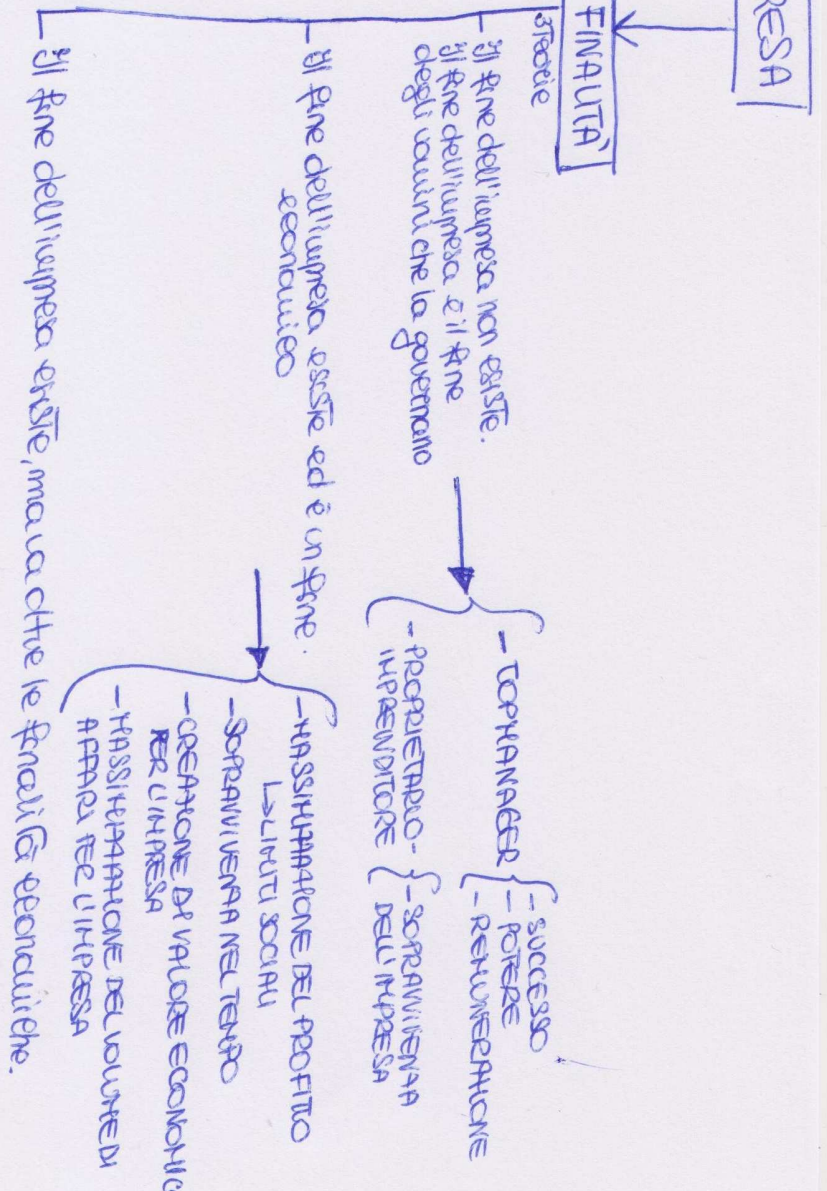 RESA
FINALITÀ
3 TEORIE
- Il fine dell'impresa non esiste.
Il fine dell'impresa è il fine
degli uomini che la governano
- TOP MANAGER
- SUCCESSO
- POTERE
- REMUNERAZIONE
- PROPRIETARIO-
IMPRENDITORE
- SOPRAVVIVENZA
DELL'IMPRESA
- Il fine dell'impresa esiste ed è un fine
economico
- MASSIMIZZAZIONE DEL PROFITTO
↳ LIMITI SOCIALI
- SOPRAVVIVENZA NEL TEMPO
- CREAZIONE DI VALORE ECONOMIC
PER L'IMPRESA
- MASSIMIZZAZIONE DEL VOLUME DI
AFFARI PER L'IMPRESA
- Il fine dell'impresa esiste, ma va oltre le finalità economiche.